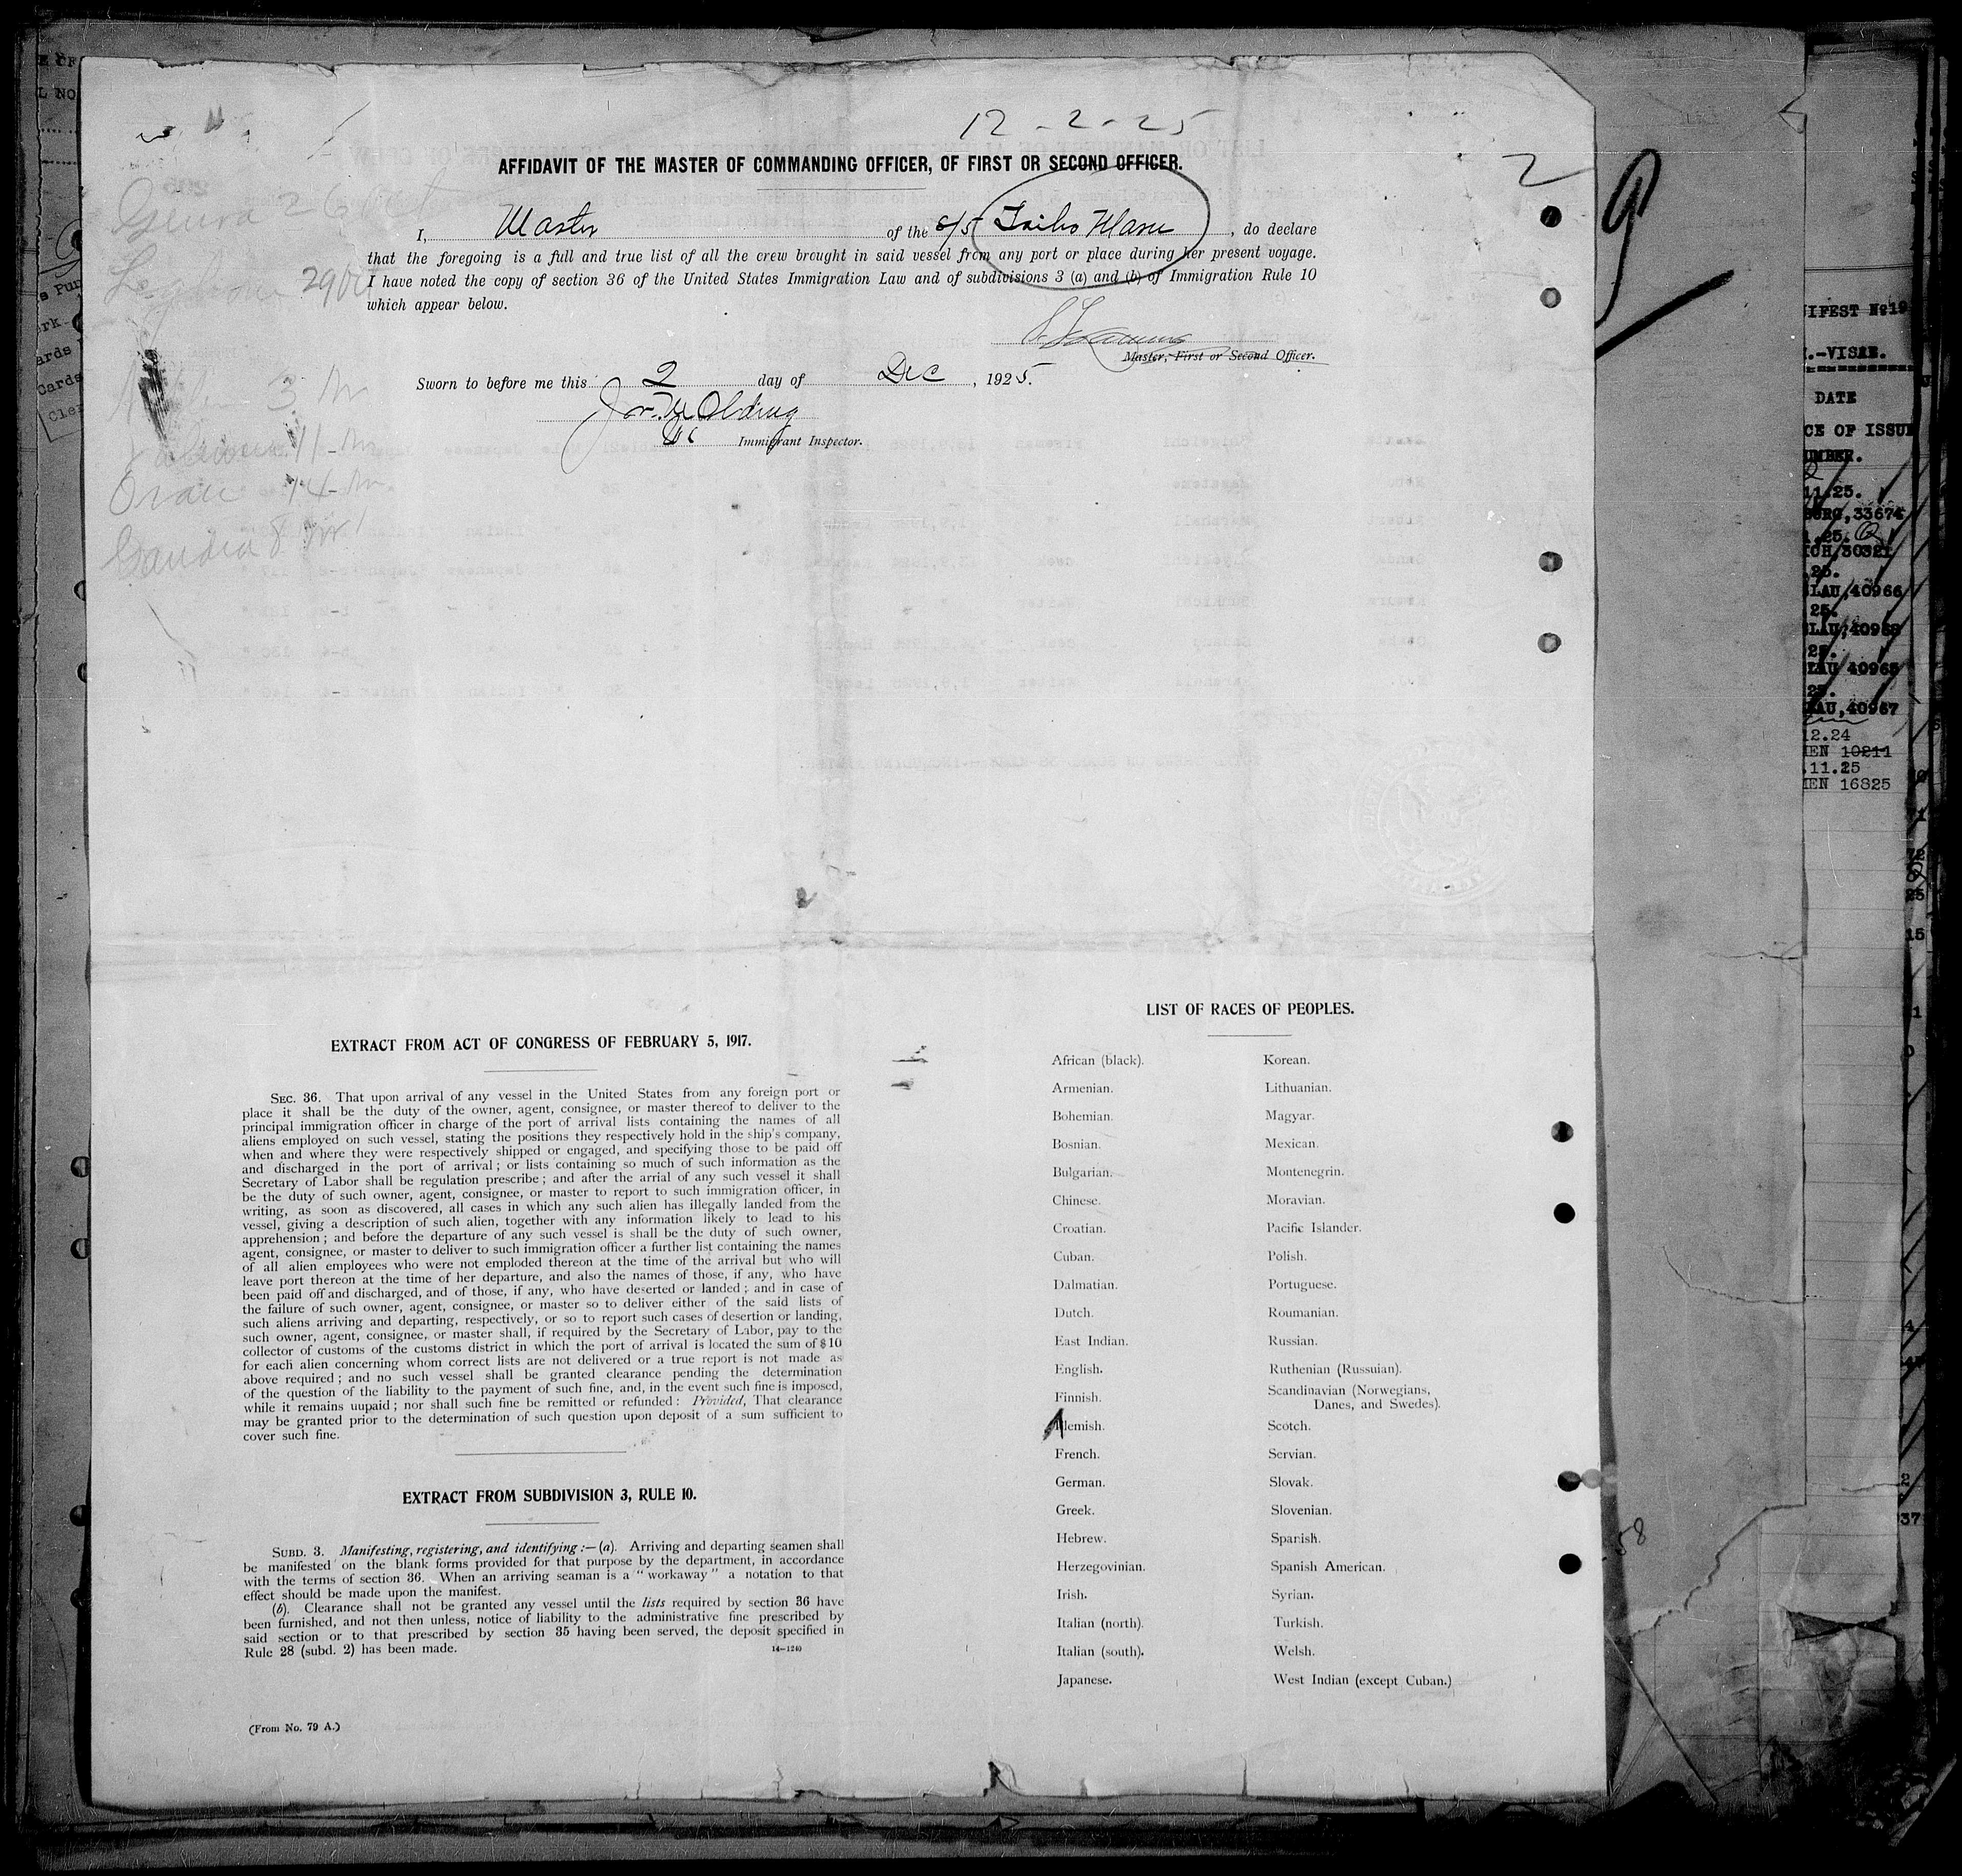 12-2-25
2
9
AFFIDAVIT OF THE MASTER OF COMMANDING OFFICER, OF FIRST OR SECOND OFFICER.
I, Master of the S/S Taiho Maru, do declare
that the foregoing is a full and true list of all the crew brought in said vessel from any port or place during her present voyage.
I have noted the copy of section 36 of the United States Immigration Law and of subdivisions 3 (a) and (b) of Immigration Rule 10
which appear below.
Master, First or Second Officer.
Sworn to before me this 2 day of Dec, 1925.
Immigrant Inspector.
Genoa 26 Oct
Leghorn 29 Oct
3
11
Oran 14
Gandia 8
EXTRACT FROM ACT OF CONGRESS OF FEBRUARY 5, 1917.
SEC. 36. That upon arrival of any vessel in the United States from any foreign port or
place it shall be the duty of the owner, agent, consignee, or master thereof to deliver to the
principal immigration officer in charge of the port of arrival lists containing the names of all
aliens employed on such vessel, stating the positions they respectively hold in the ship's company,
when and where they were respectively shipped or engaged, and specifying those to be paid off
and discharged in the port of arrival; or lists containing so much of such information as the
Secretary of Labor shall be regulation prescribe; and after the arrial of any such vessel it shall
be the duty of such owner, agent, consignee, or master to report to such immigration officer, in
writing, as soon as discovered, all cases in which any such alien has illegally landed from the
vessel, giving a description of such alien, together with any information likely to lead to his
apprehension; and before the departure of any such vessel is shall be the duty of such owner,
agent, consignee, or master to deliver to such immigration officer a further list containing the names
of all alien employees who were not emploded thereon at the time of the arrival but who will
leave port thereon at the time of her departure, and also the names of those, if any, who have
been paid off and discharged, and of those, if any, who have deserted or landed; and in case of
the failure of such owner, agent, consignee, or master so to deliver either of the said lists of
such aliens arriving and departing, respectively, or so to report such cases of desertion or landing,
such owner, agent, consignee, or master shall, if required by the Secretary of Labor, pay to the
collector of customs of the customs district in which the port of arrival is located the sum of $10
for each alien concerning whom correct lists are not delivered or a true report is not made as
above required; and no such vessel shall be granted clearance pending the determination
of the question of the liability to the payment of such fine, and, in the event such fine is imposed,
while it remains uupaid; nor shall such fine be remitted or refunded: Provided, That clearance
may be granted prior to the determination of such question upon deposit of a sum sufficient to
cover such fine.
EXTRACT FROM SUBDIVISION 3, RULE 10.
SUBD. 3. Manifesting, registering, and identifying:—(a). Arriving and departing seamen shall
be manifested on the blank forms provided for that purpose by the department, in accordance
with the terms of section 36. When an arriving seaman is a "workaway" a notation to that
effect should be made upon the manifest.
(b). Clearance shall not be granted any vessel until the lists required by section 36 have
been furnished, and not then unless, notice of liability to the administrative fine prescribed by
said section or to that prescribed by section 35 having been served, the deposit specified in
Rule 28 (subd. 2) has been made.
14—1240
(From No. 79 A.)
LIST OF RACES OF PEOPLES.
African (black).
Armenian.
Bohemian.
Bosnian.
Bulgarian.
Chinese.
Croatian.
Cuban.
Dalmatian.
Dutch.
East Indian.
English.
Finnish.
Flemish.
French.
German.
Greek.
Hebrew.
Herzegovinian.
Irish.
Italian (north).
Italian (south).
Japanese.
Korean.
Lithuanian.
Magyar.
Mexican.
Montenegrin.
Moravian.
Pacific Islander.
Polish.
Portuguese.
Roumanian.
Russian.
Ruthenian (Russuian).
Scandinavian (Norwegians,
Danes, and Swedes).
Scotch.
Servian.
Slovak.
Slovenian.
Spanish.
Spanish American.
Syrian.
Turkish.
Welsh.
West Indian (except Cuban.)
58
IFEST No 19
.-VISAE.
DATE
CE OF ISSUE
UMBER.
11.25.
BURG,33674
.25.
ICH,30321
.25.
LAU,40966
25.
LAU,40968
25.
LAU 40965
25.
LAU,40967
12.24
MEN 10211
.11.25
MEN 16825